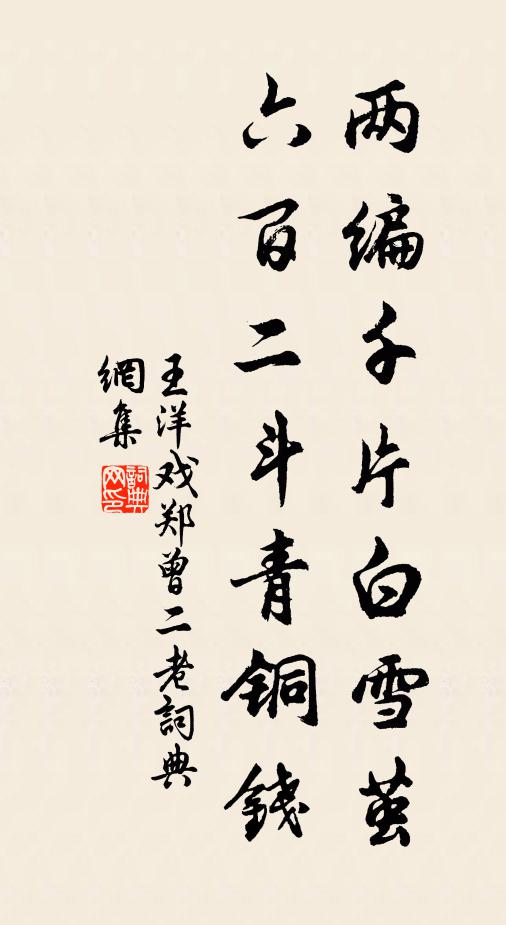 两编千片白雪茧
六百二斗青铜錢
王洋戏郑曾二老詞典
網集
詞典
网印